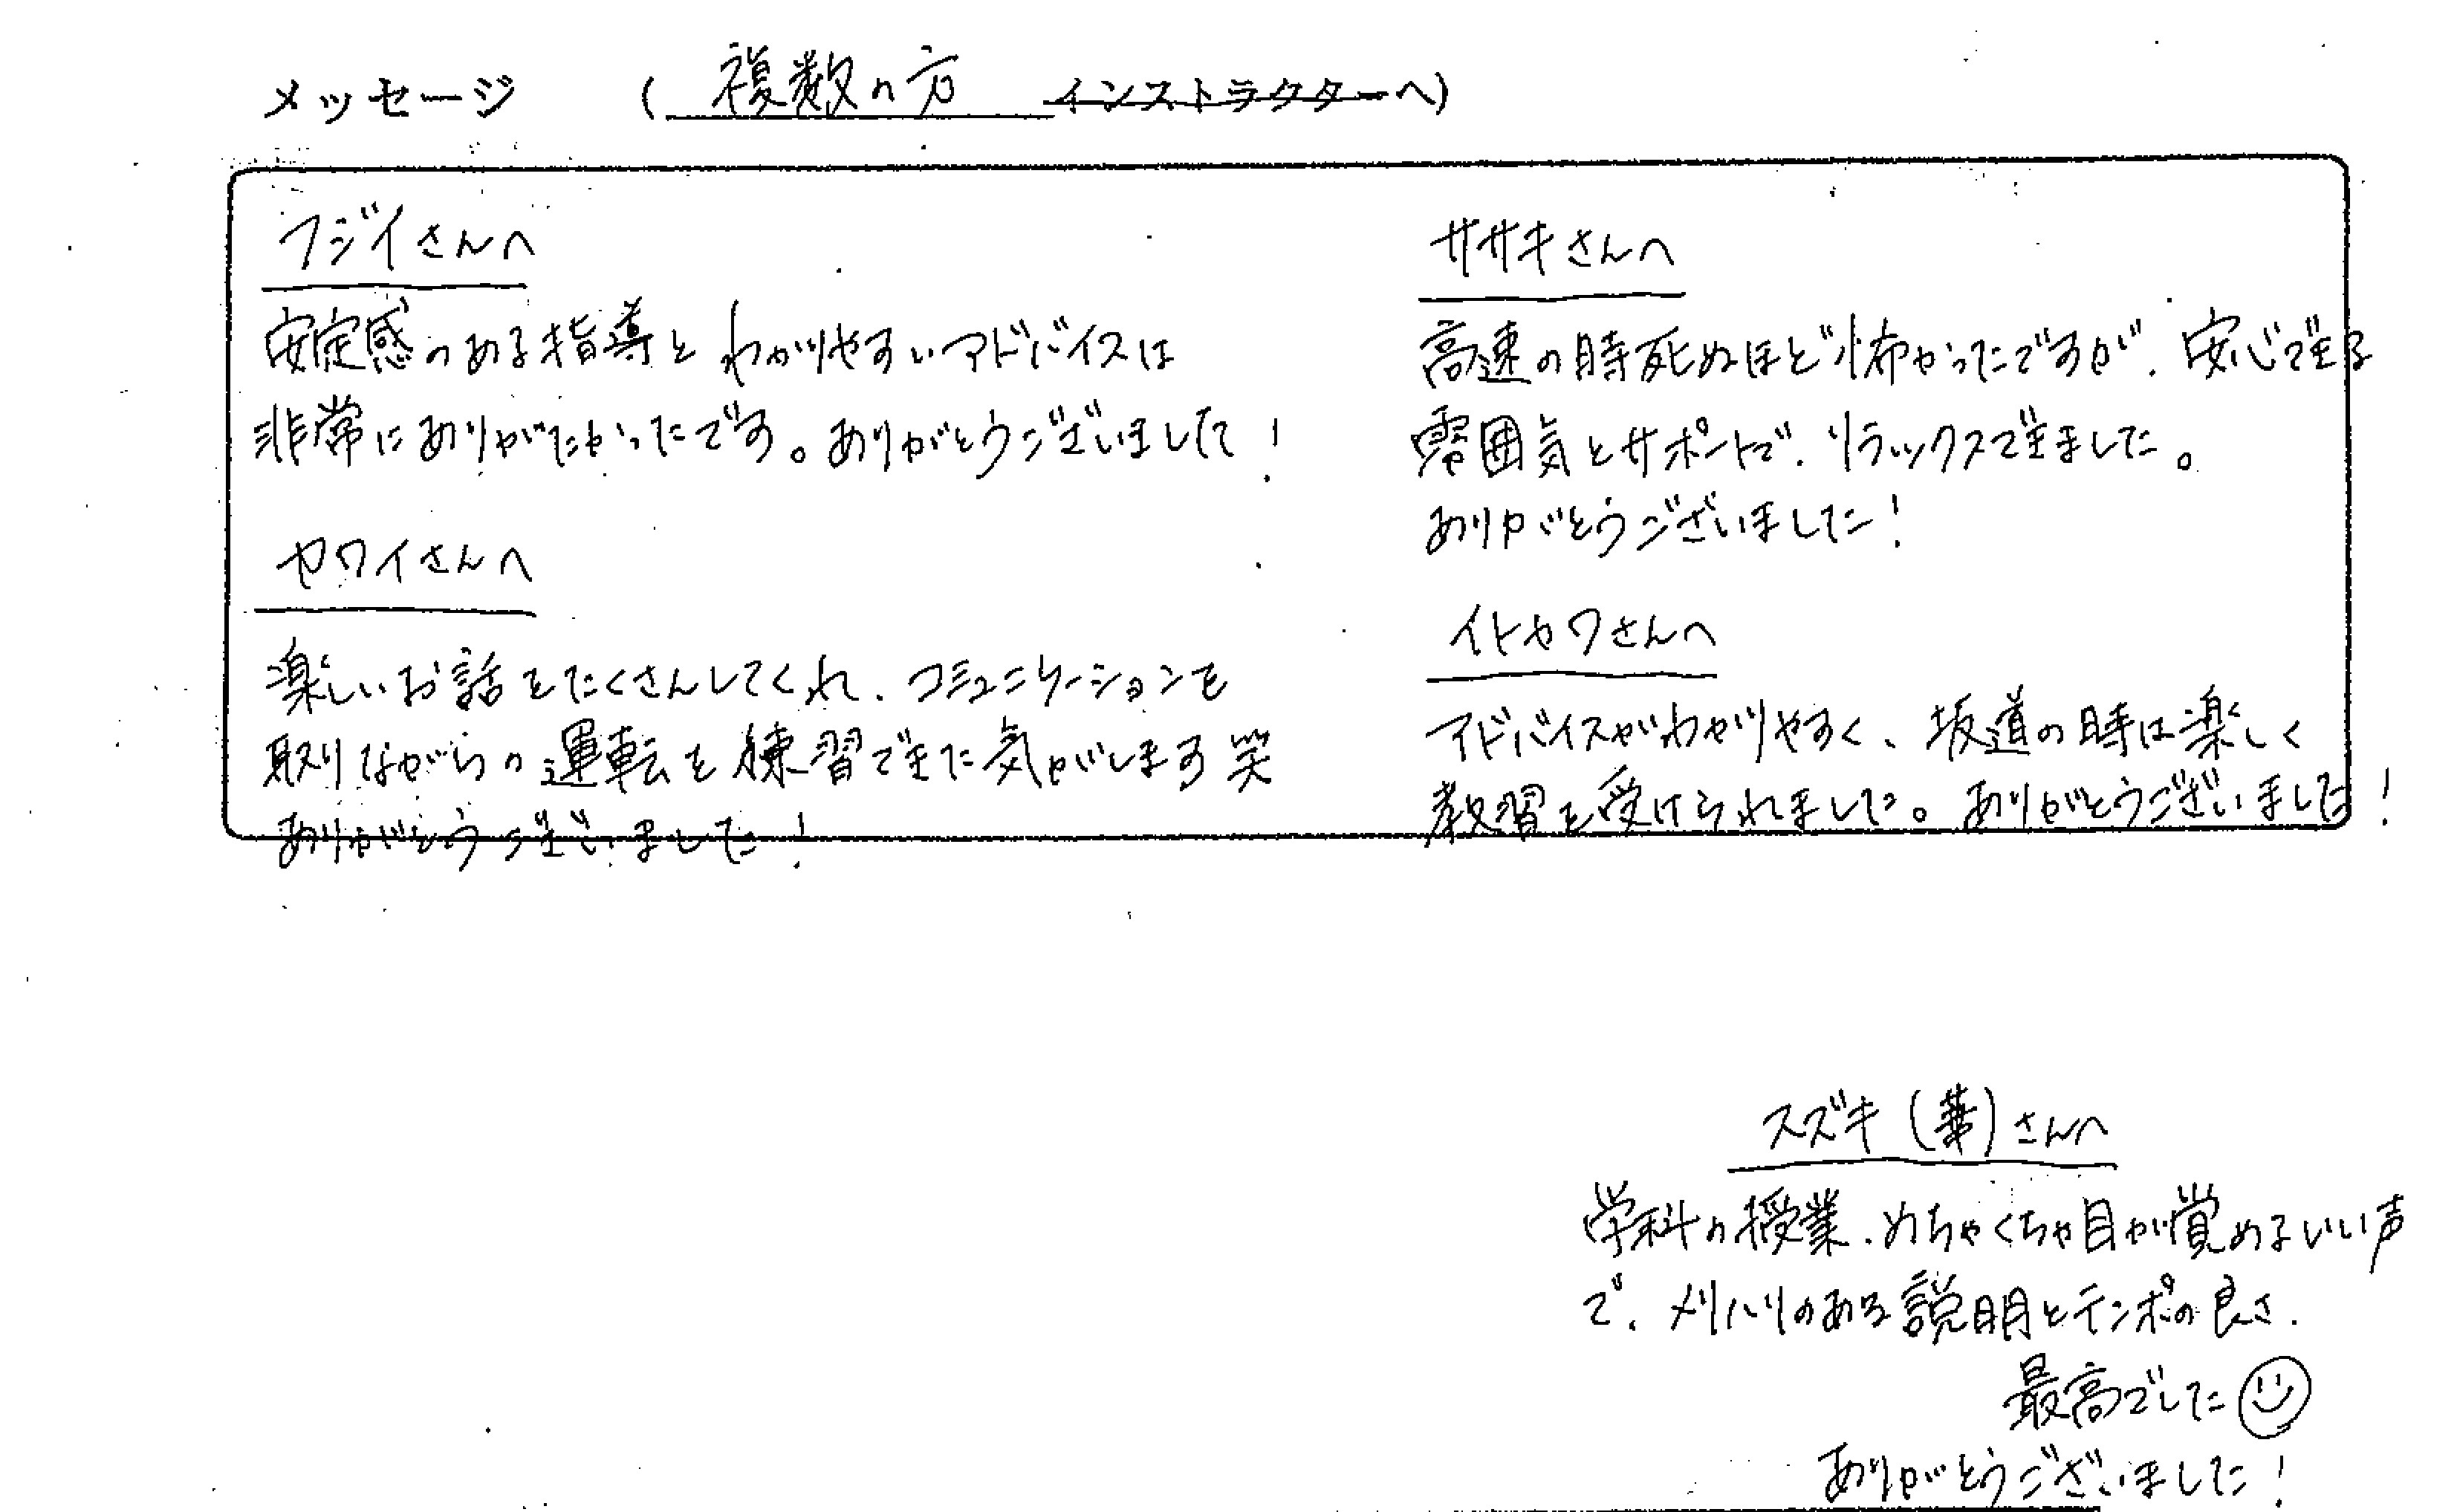 メッセージ （ 複数の方 インストラクターへ）
フジイさんへ
安定感のある指導とわかりやすいアドバイスは
非常にありがたかったです。ありがとうございました！
カワイさんへ
楽しいお話をたくさんしてくれ、コミュニケーションを
取りながらの運転を練習できた気がします笑
ありがとうございました！
ササキさんへ
高速の時死ぬほど怖かったですが、安心できる
雰囲気とサポートで、リラックスできました。
ありがとうございました！
イトカワさんへ
アドバイスがわかりやすく、坂道の時は楽しく
教習を受けられました。ありがとうございました！
スズキ（華）さんへ
学科の授業、めちゃくちゃ目が覚めるいい声
で、メリハリのある説明とテンポの良さ、
最高でした
ありがとうございました！